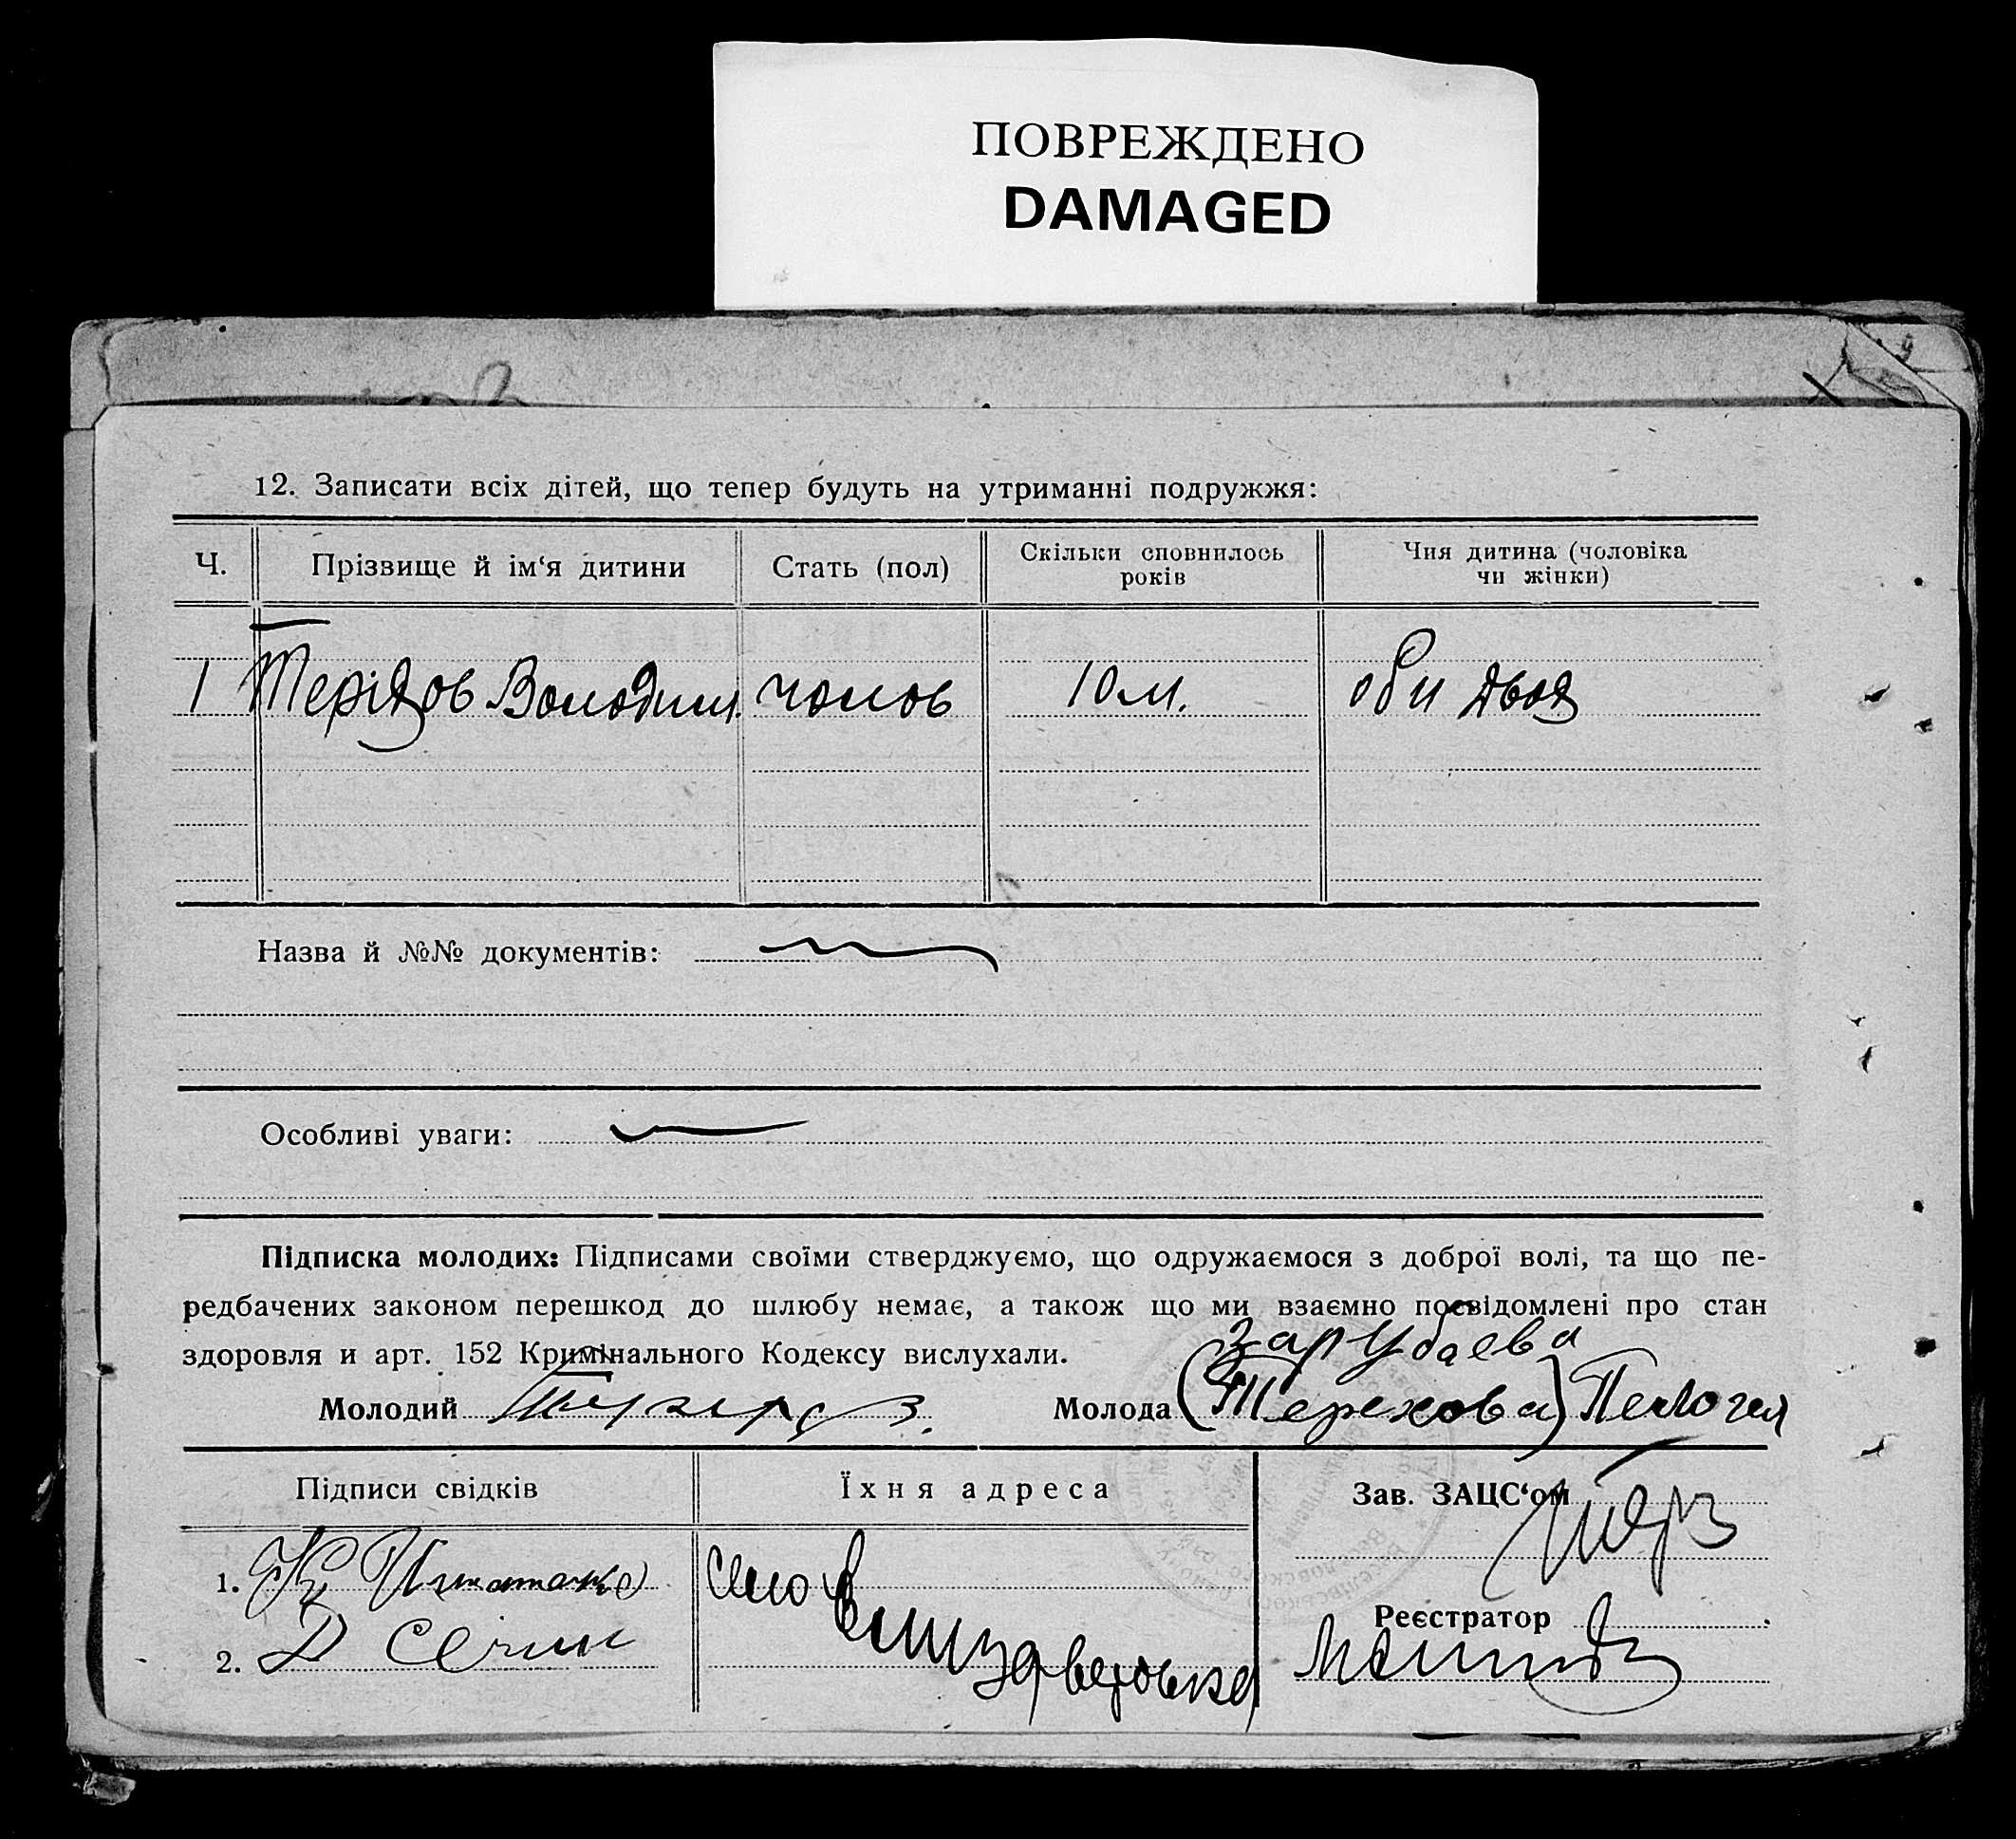 ПОВРЕЖДЕНО
DAMAGED
12. Записати всіх дітей, що тепер будуть на утриманні подружжя:
Ч. Прізвище й ім‘я дитини Стать (пол) Скільки сповнилось років Чия дитина (чоловіка чи жінки)
1 Володим. чолов 10 м. оби двоя
Назва й №№ документів:
Особливі уваги:
Підписка молодих: Підписами своїми стверджуємо, що одружаємося з доброї волі, та що пе-
редбачених законом перешкод до шлюбу немає, а також що ми взаємно посвідомлені про стан
здоровля и арт. 152 Кримінального Кодексу вислухали.
Зарубаева
Молодий Молода (Терехова) Пелогея
Підписи свідків Їхня адреса Зав. ЗАЦС‘ом
1. село
Єлизаветовка
Реєстратор
2.